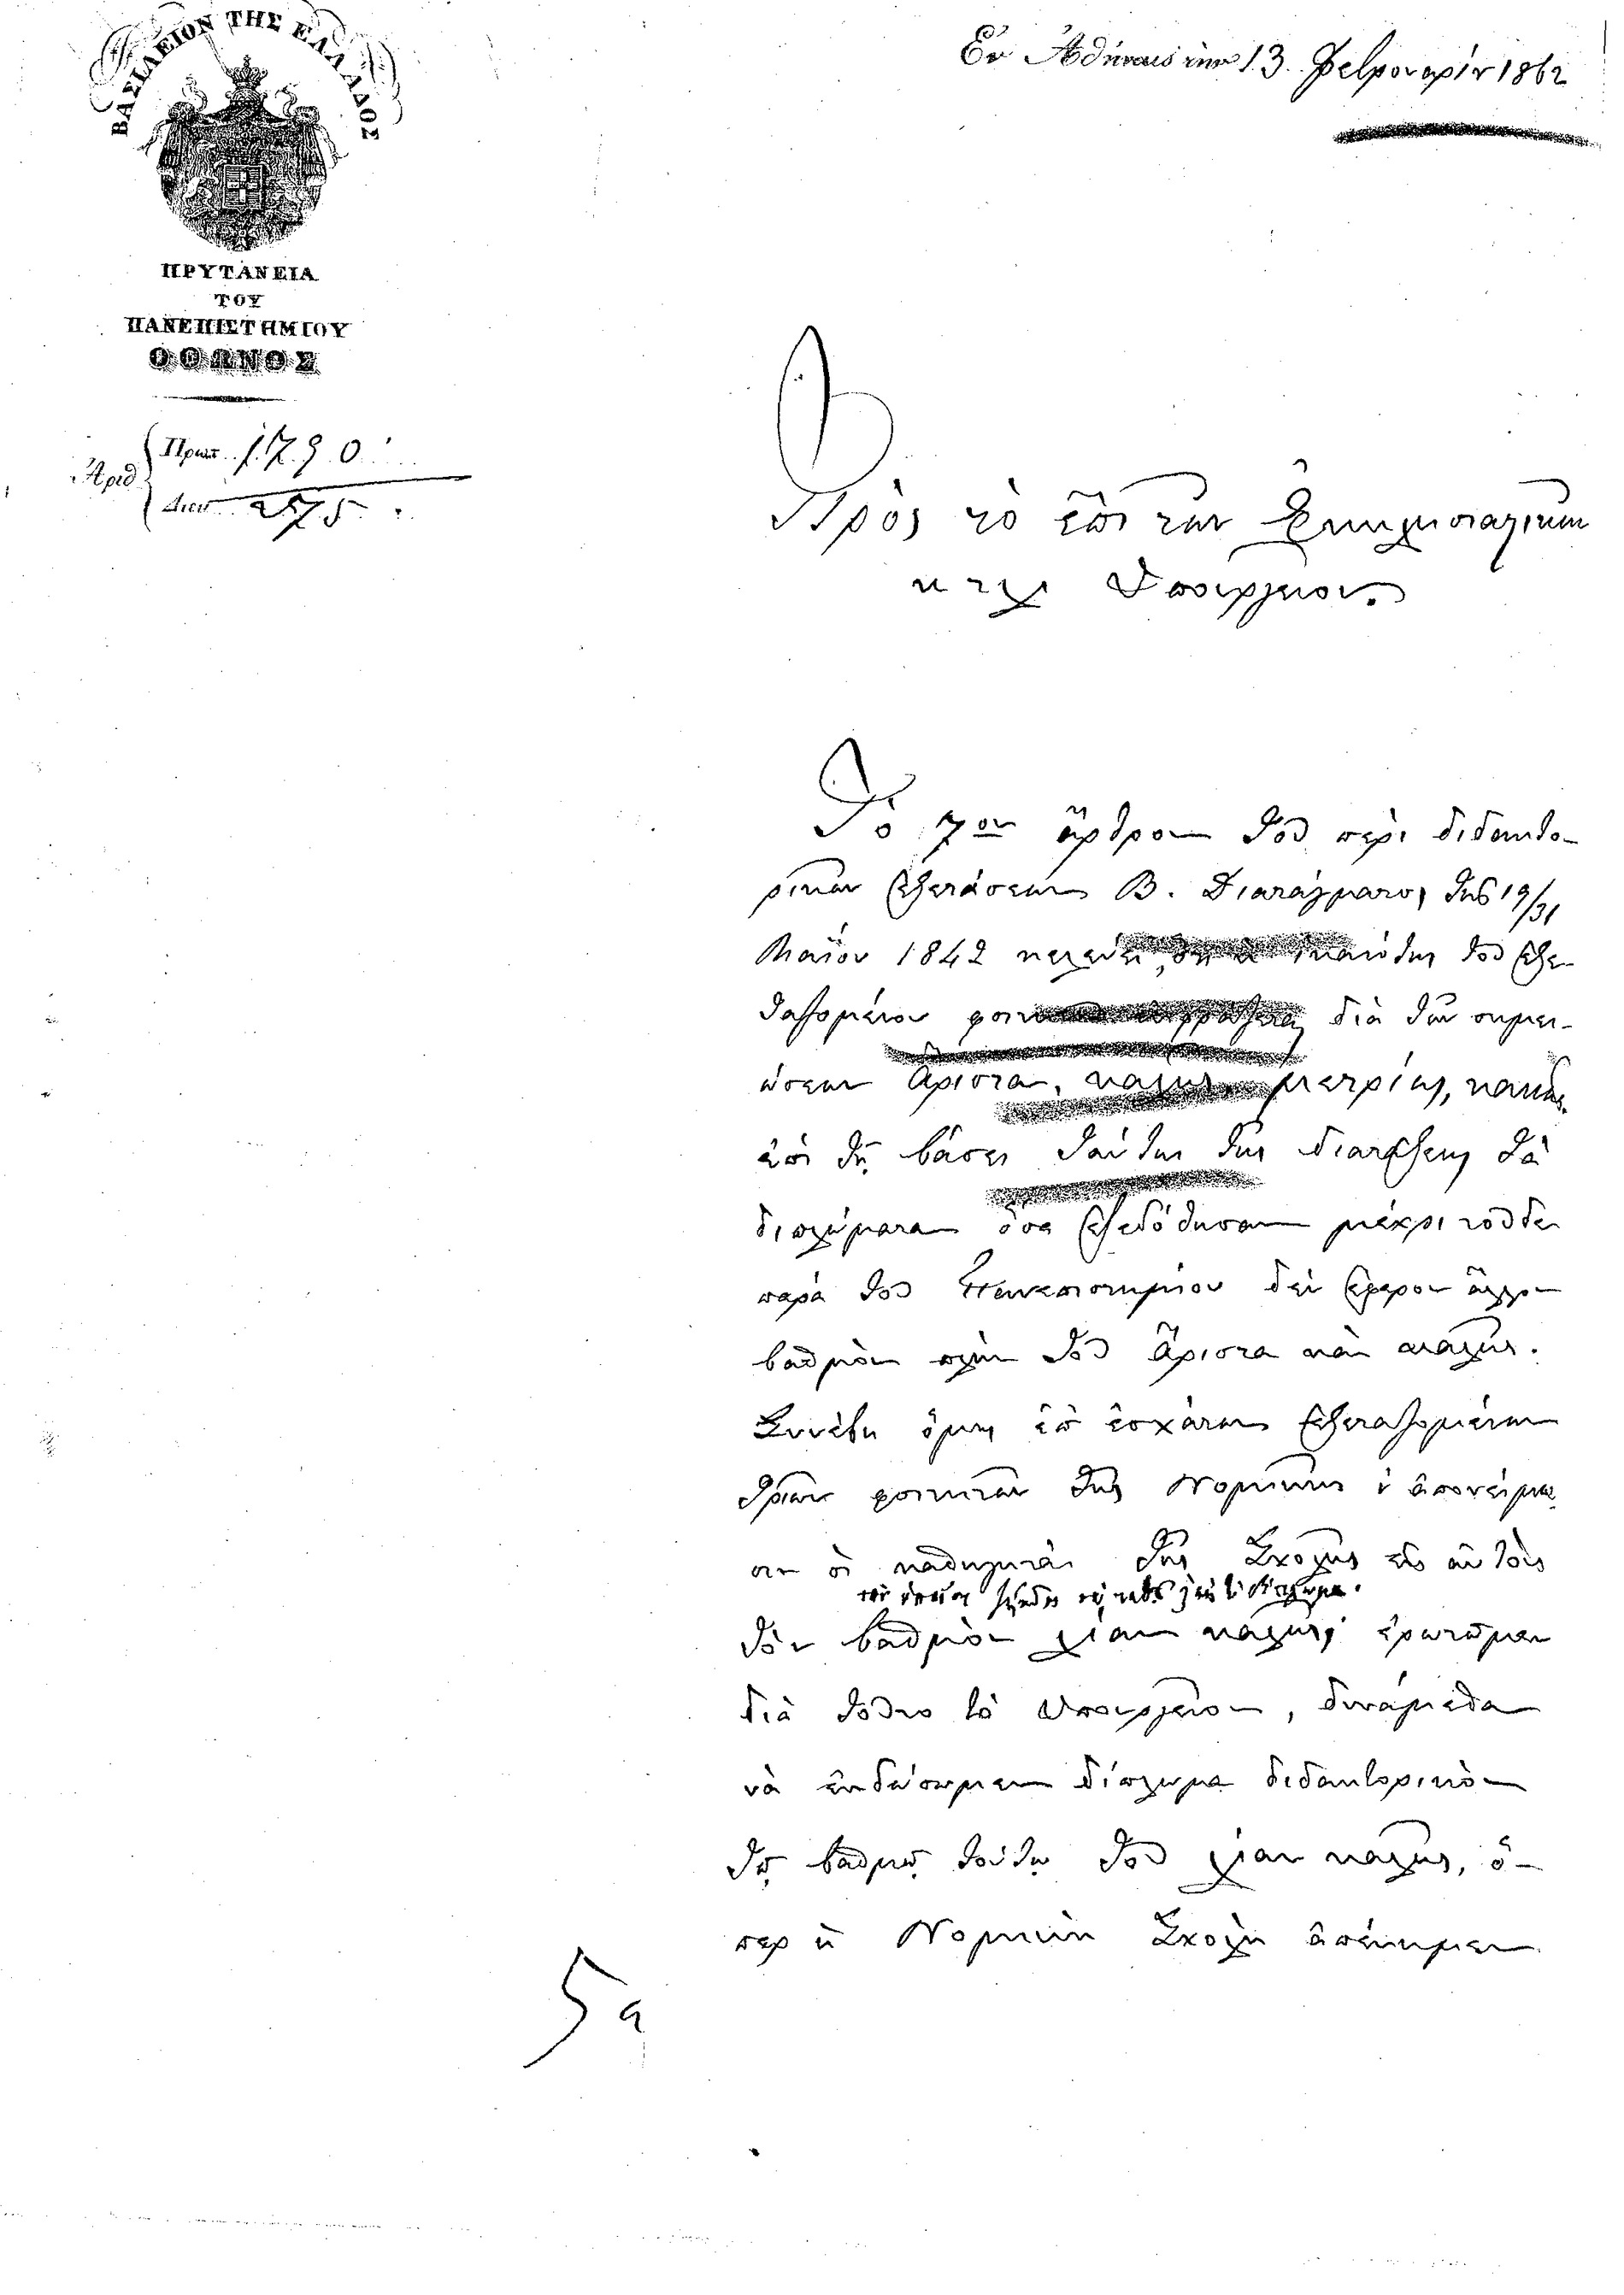 ΒΑΣΙΛΕΙΟΝ ΤΗΣ ΕΛΛΑΔΟΣ
ΠΡΥΤΑΝΕΙΑ
ΤΟΥ
ΠΑΝΕΠΙΣΤΗΜΙΟΥ
ΟΘΩΝΟΣ
Ἀριθ
Πρωτ. 1790
Διεκ. 2875
Ἐν Ἀθήναις τὴν 13 Φεβρουαρίου 1862
Πρὸς τὸ ἐπὶ τῶν Ἐκκλησιαστικῶν
κτλ Ὑπουργεῖον.
Τὸ 7ον ἄρθρον τοῦ περὶ διδακτο-
ρικῶν ἐξετάσεων Β. Διατάγματος τῆς 19/31
Μαΐου 1842 κελεύει, ὅτι ἡ ἱκανότης τοῦ ἐξε-
ταζομένου φοιτητοῦ ἐκφράζεται διὰ τῶν σημει-
ώσεων ἄριστα, καλῶς, μετρίως, κακῶς.
ἐπὶ τῇ βάσει ταύτης τῆς διατάξεως τὰ
διπλώματα ὅσα ἐξεδόθησαν μέχρι τοῦδε
παρὰ τοῦ Πανεπιστημίου δὲν ἔφερον ἄλλον
βαθμὸν πλὴν τοῦ ἄριστα καὶ καλῶς.
Συνέβη ὅμως ἐπ' ἐσχάτων ἐξεταζομένων
τριῶν φοιτητῶν τῆς Νομικῆς ν' ἀπονείμω-
σιν οἱ καθηγηταὶ τῆς Σχολῆς εἰς αὐτοὺς
τὸν βαθμὸν λίαν καλῶς, ἐρωτῶμεν
διὰ τοῦτο τὸ Ὑπουργεῖον, δυνάμεθα
νὰ ἐκδώσωμεν δίπλωμα διδακτορικὸν
τῷ βαθμῷ τούτῳ τοῦ λίαν καλῶς, ὅ-
περ ἡ Νομικὴ Σχολὴ ἀπένειμεν